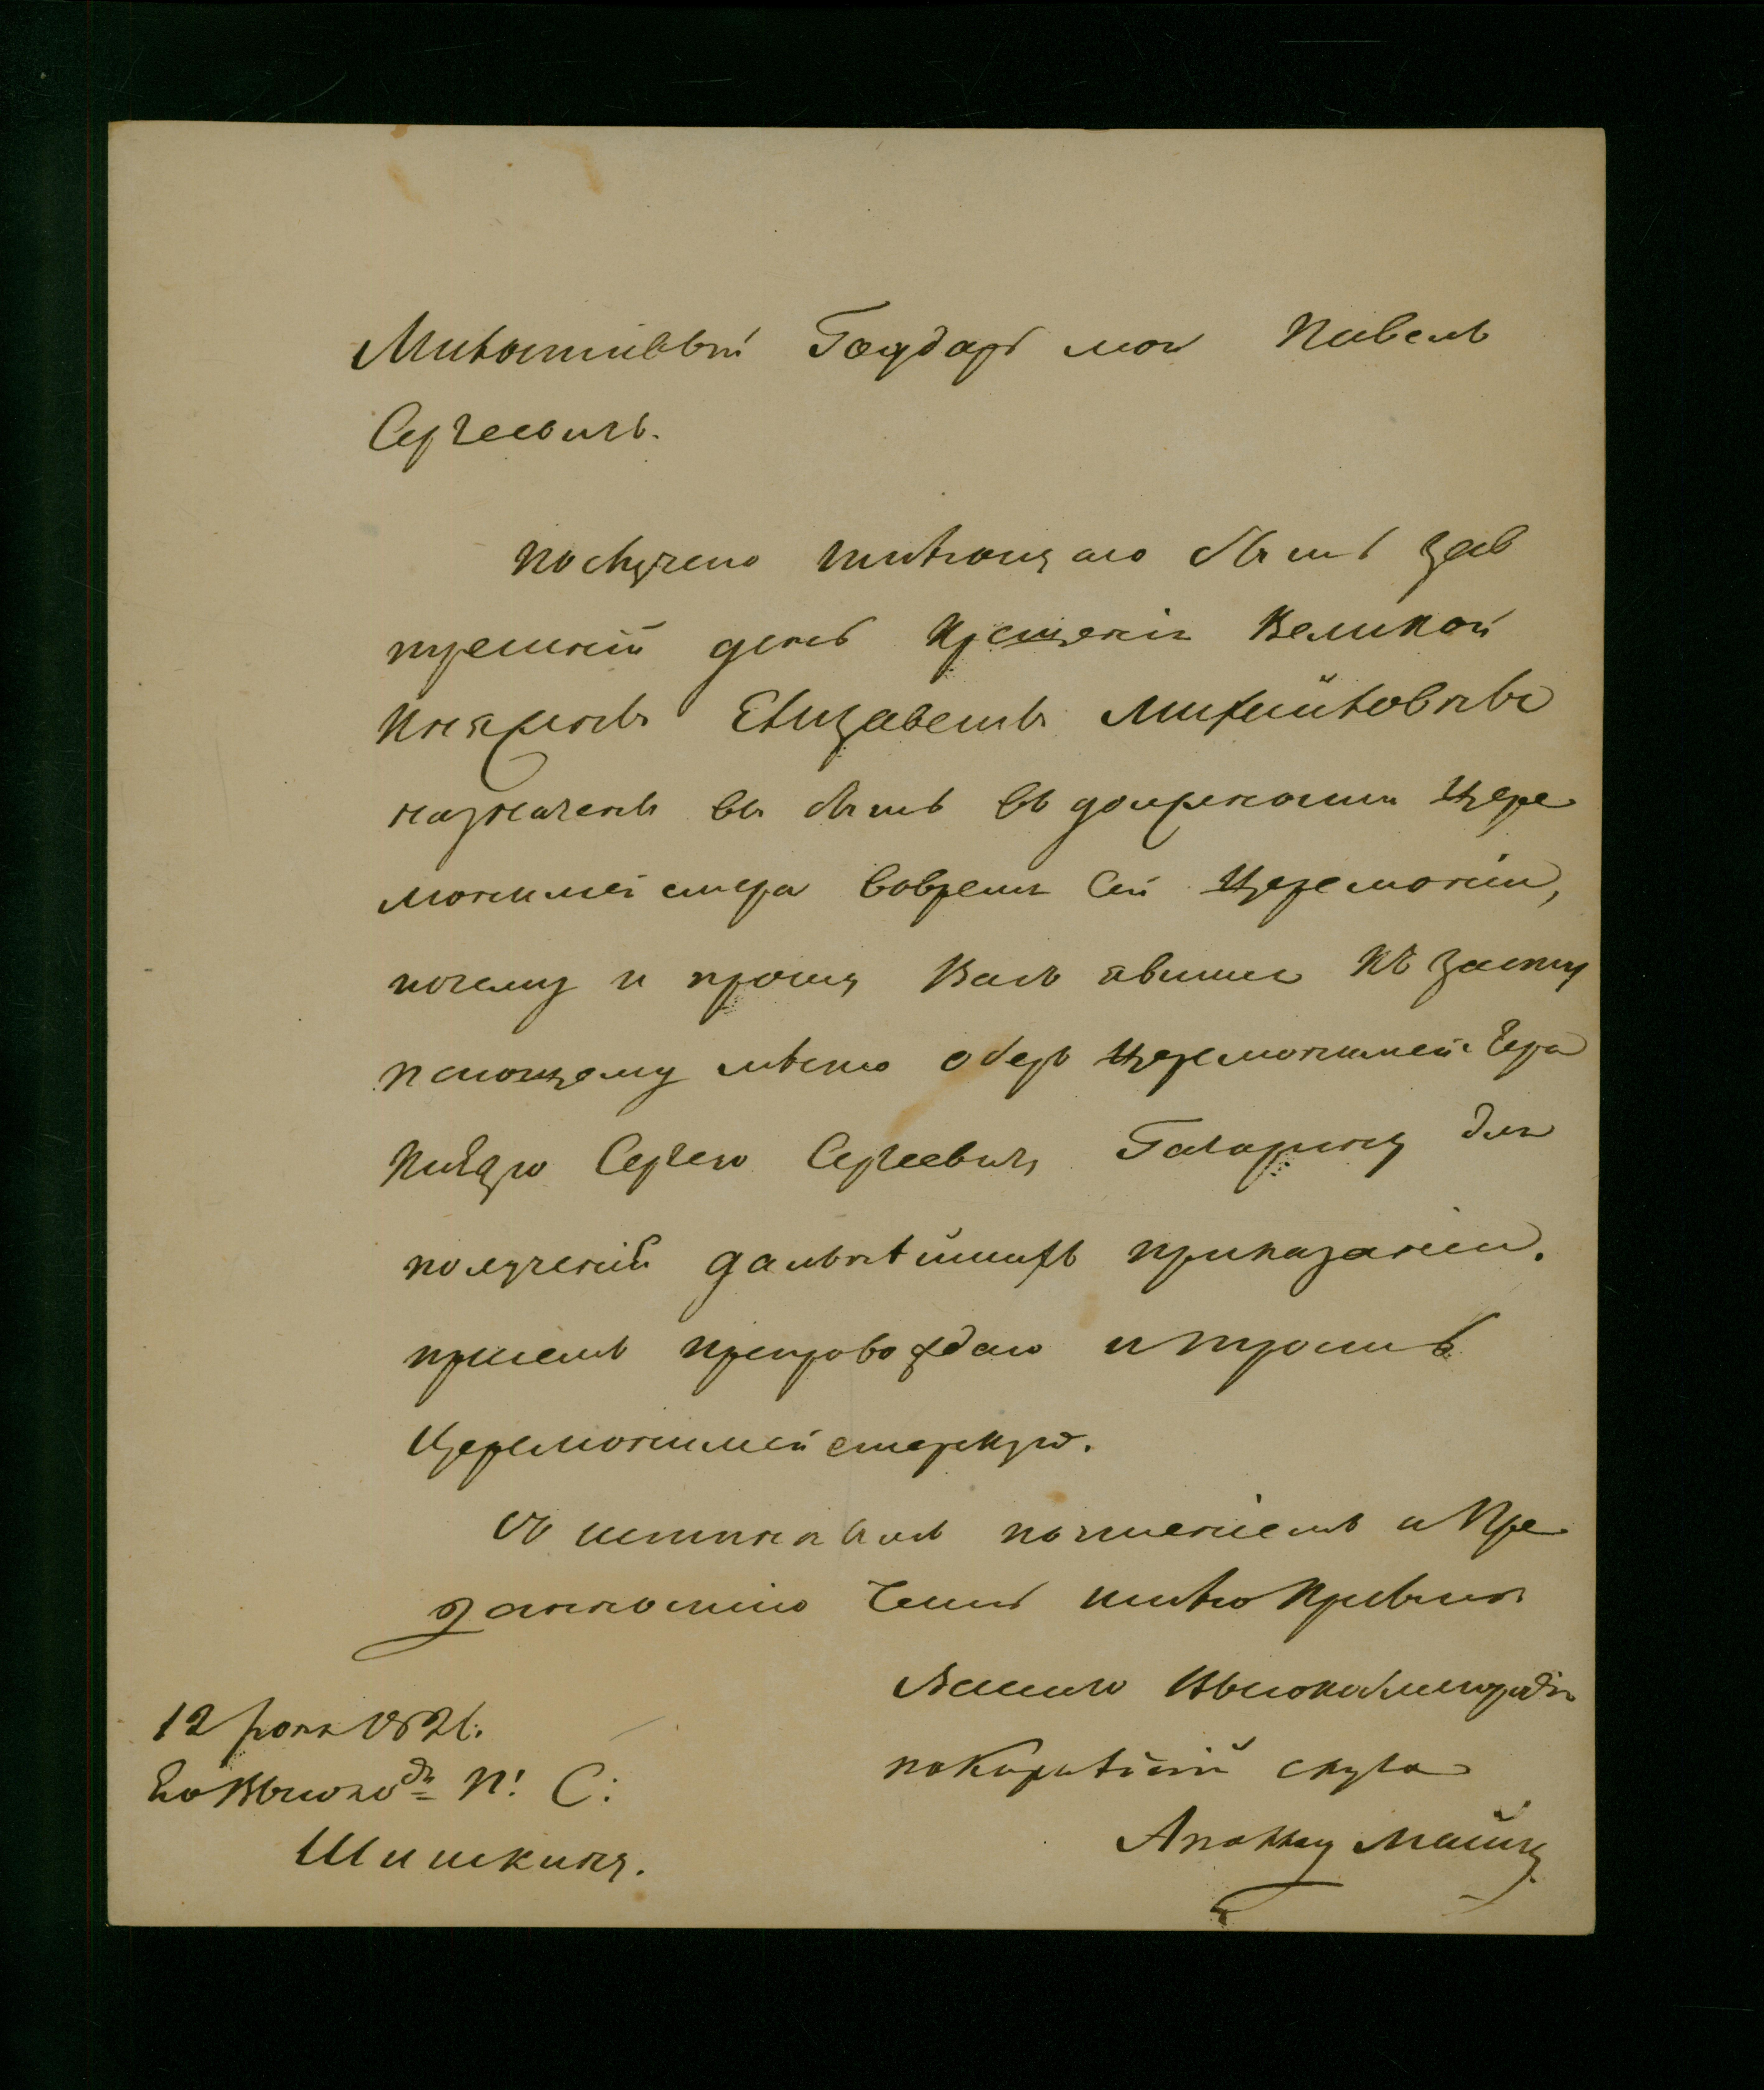 Милостивый Госудaрь мой Павелъ
Сергеевичь.
По случаю имѣющаго быть зав
трешній день крещенія Великой
Княжнѣ Елизаветѣ Михайловнѣ
назначены вы быть въ должности Цере
монимейстера вовремя Сей Церемоніи,
почему и прошу Васъ явится къ засту
пающему мѣсто оберъ Церемонимейстера
Князю Сергею Сергеевичу Гагарину для
полученій дальнѣйшихъ приказаніи.
присемъ препровождаю и трость
Церемонимейстерскую.
Съ истиннымъ почтеніемъ и Пре
данностію Честь имѣю Пребыть
Вашего Высокоблагородія
покорнѣйшій слуга
Аполлонъ Майковъ
12 Іюня 1826.
Его Высокодіе П: С:
Шишкину.